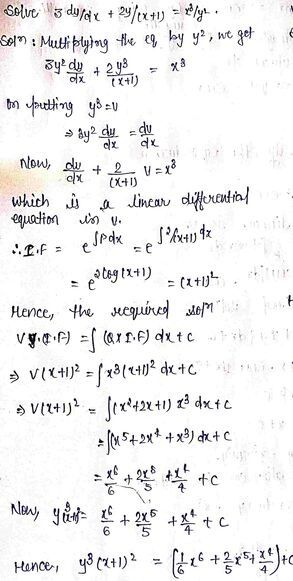 Solve 3 dy/dx + 2y/(x+1) = x³/y².
Solⁿ : Multiplying the eq by y², we get
3y² dy/dx + 2y³/(x+1) = x³
On putting y³ = v
⇒ 3y² dy/dx = dv/dx
Now, dv/dx + 2/(x+1) V = x³
which is a linear differential
equation in v.
∴ I.F = e^∫Pdx = e^∫2/(x+1) dx
= e^2log(x+1) = (x+1)²
Hence, the required solⁿ
V (I.F) = ∫(Q×I.F) dx + c
⇒ V(x+1)² = ∫x³(x+1)² dx + c
⇒ V(x+1)² = ∫(x²+2x+1) x³ dx + c
= ∫(x⁵+2x⁴+x³) dx + c
= x⁶/6 + 2x⁵/5 + x⁴/4 + c
Now, y³(x+1)² = x⁶/6 + 2x⁵/5 + x⁴/4 + c
Hence, y³(x+1)² = (1/6 x⁶ + 2/5 x⁵ + x⁴/4) + c